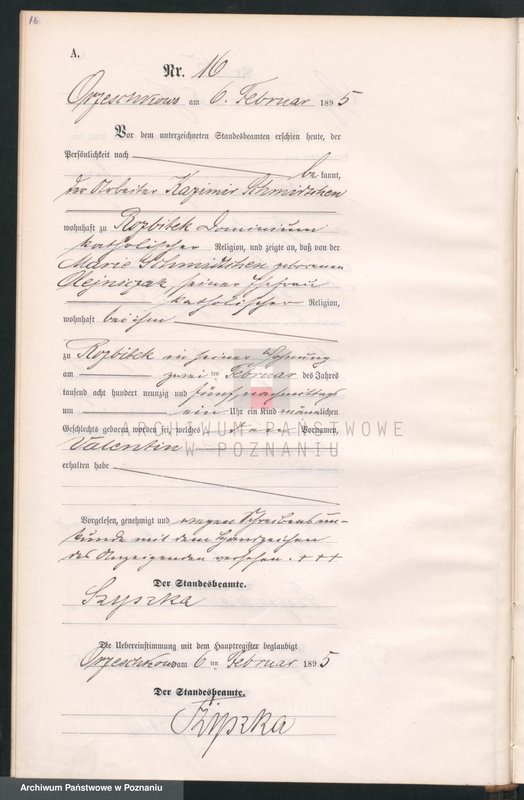 16
A.
Nr. 16
Orzeschkowo am 6. Februar 1895
Vor dem unterzeichneten Standesbeamten erschien heute, der
Persönlichkeit nach
be kannt,
der Arbeiter Kazimir Schmidtchen
wohnhaft zu Rozbitek Dominium
katholischer Religion, und zeigte an, daß von der
Marie Schmidtchen geborenen
Olejniczak, seiner Ehefrau
katholischer Religion,
wohnhaft bei ihm
zu Rozbitek in seiner Wohnung
am zwei ten Februar des Jahres
tausend acht hundert neunzig und fünf, nachmittags
um ein Uhr ein Kind männlichen
Geschlechts geboren worden sei, welches den Vornamen
Valentin
erhalten habe
Vorgelesen, genehmigt und wegen Schreibensun-
kunde mit dem Handzeichen
des Anzeigenden versehen. + + +
Der Standesbeamte.
Szyszka
Die Uebereinstimmung mit dem Hauptregister beglaubigt
Orzeschkowo am 6 ten Februar 1895
Der Standesbeamte.
Szyszka
ARCHIWUM PAŃSTWOWE
W POZNANIU
Archiwum Państwowe w Poznaniu